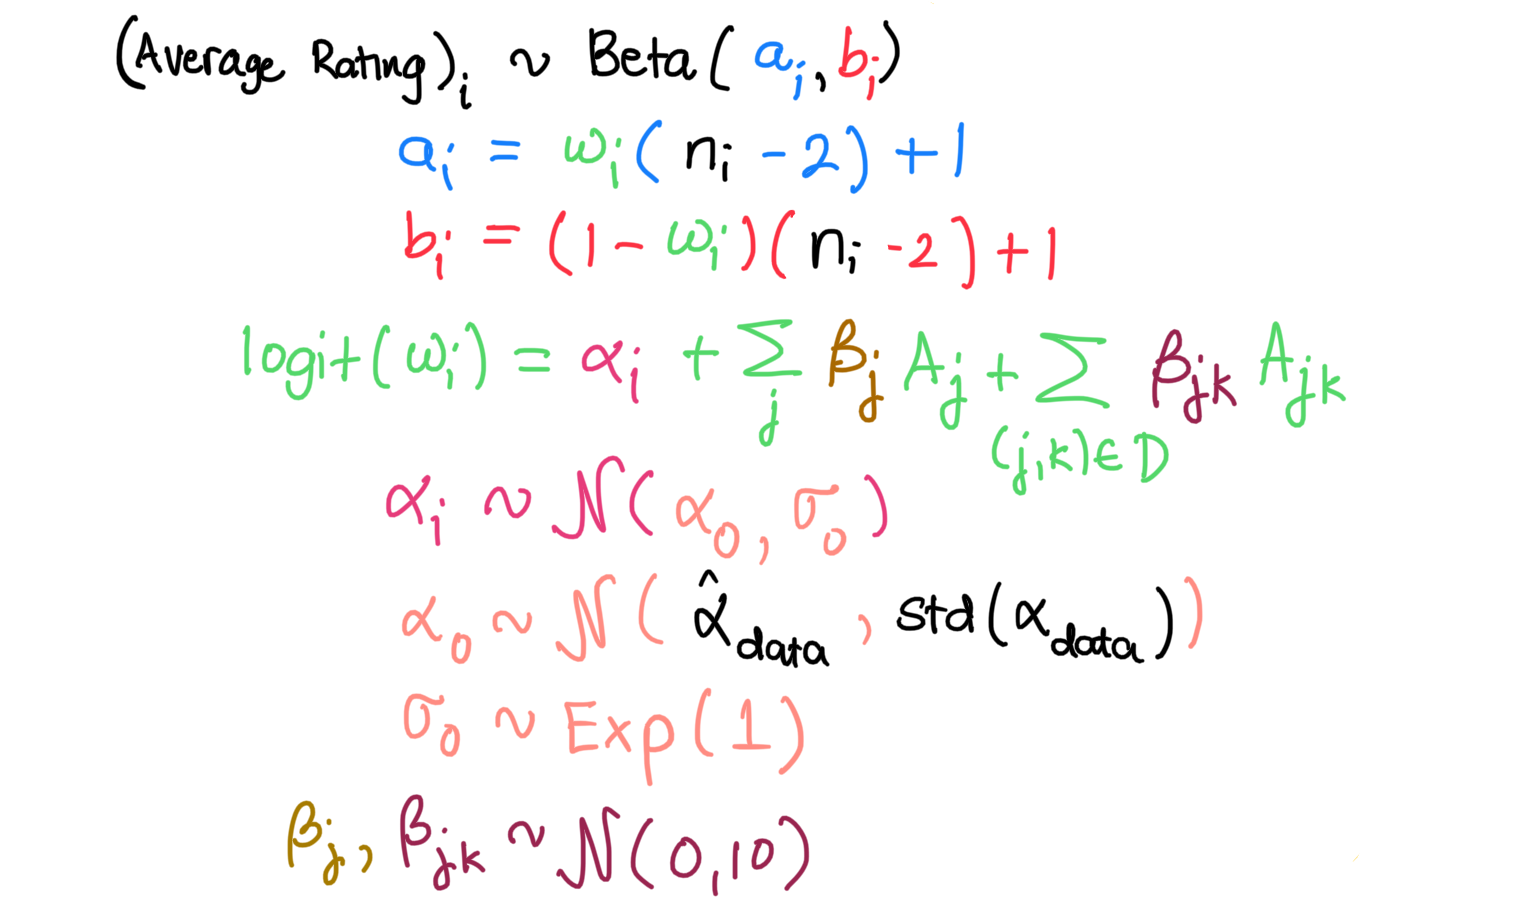 (Average Rating)ᵢ ~ Beta(aᵢ, bᵢ)
aᵢ = ωᵢ(nᵢ - 2) + 1
bᵢ = (1 - ωᵢ)(nᵢ - 2) + 1
logit(ωᵢ) = αᵢ + ∑_j β_j A_j + ∑_{(j,k)∈D} β_{jk} A_{jk}
αᵢ ~ 𝒩(α₀, σ₀)
α₀ ~ 𝒩(α̂_{data}, std(α_{data}))
σ₀ ~ Exp(1)
β_j, β_{jk} ~ 𝒩(0,10)